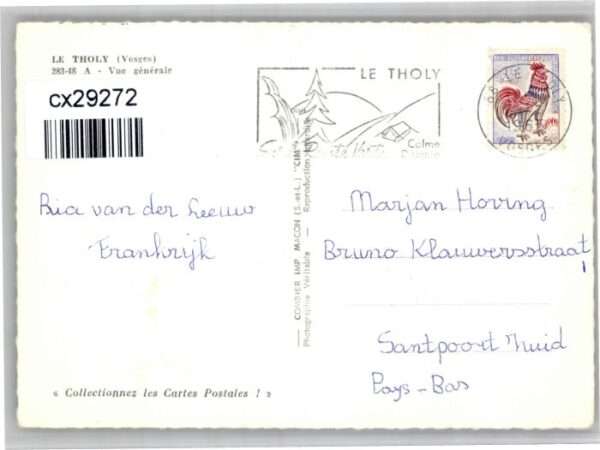 LE THOLY (Vosges)
283-48 A - Vue générale
cx29272
LE THOLY
Calme
Ria van der Leeuw
Frankrijk
COMBIER IMP. MACON (S.-et-L.) "CIM"
Photographie Véritable — Reproduction
Marjan Hoving
Bruno Klauwersstraat 1
Santpoort Zuid
Pays-Bas
« Collectionnez les Cartes Postales ! »